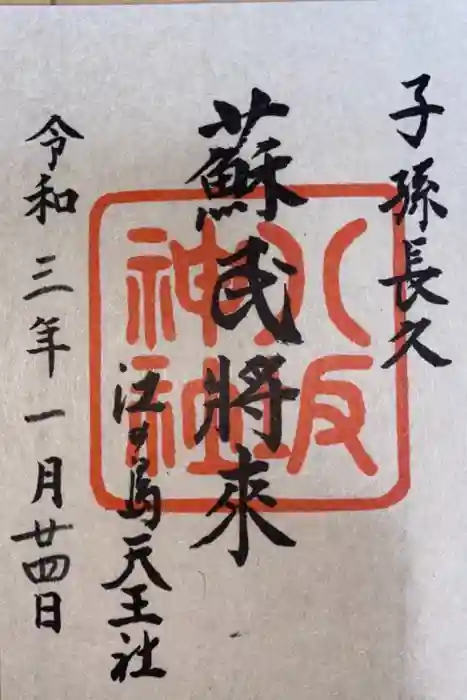 子孫長久
蘇民將來
江ゆ島天王社
令和三年一月廿四日
八坂
神社